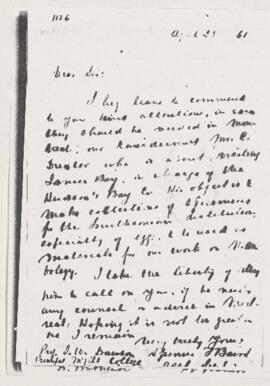 1126
April 23 61
Dear Sir:
I beg leave to commend
to your kind attention, in case
they should be needed in Mon
treal, our
Drexler who is about visiting
James Bay, in charge of the
Hudson's Bay Co. His object is to
make collections of specimens
for the Smithsonian Institution,
especially of eggs, to be used as
materials for our work on
ology. I take the liberty of
him to call on you, if he needs
any counsel or advice in Mont
real: Hoping it is not too great
I remain
Very truly yours,
Prof. J. W. Dawson Spencer F Baird
McGill College
Montreal